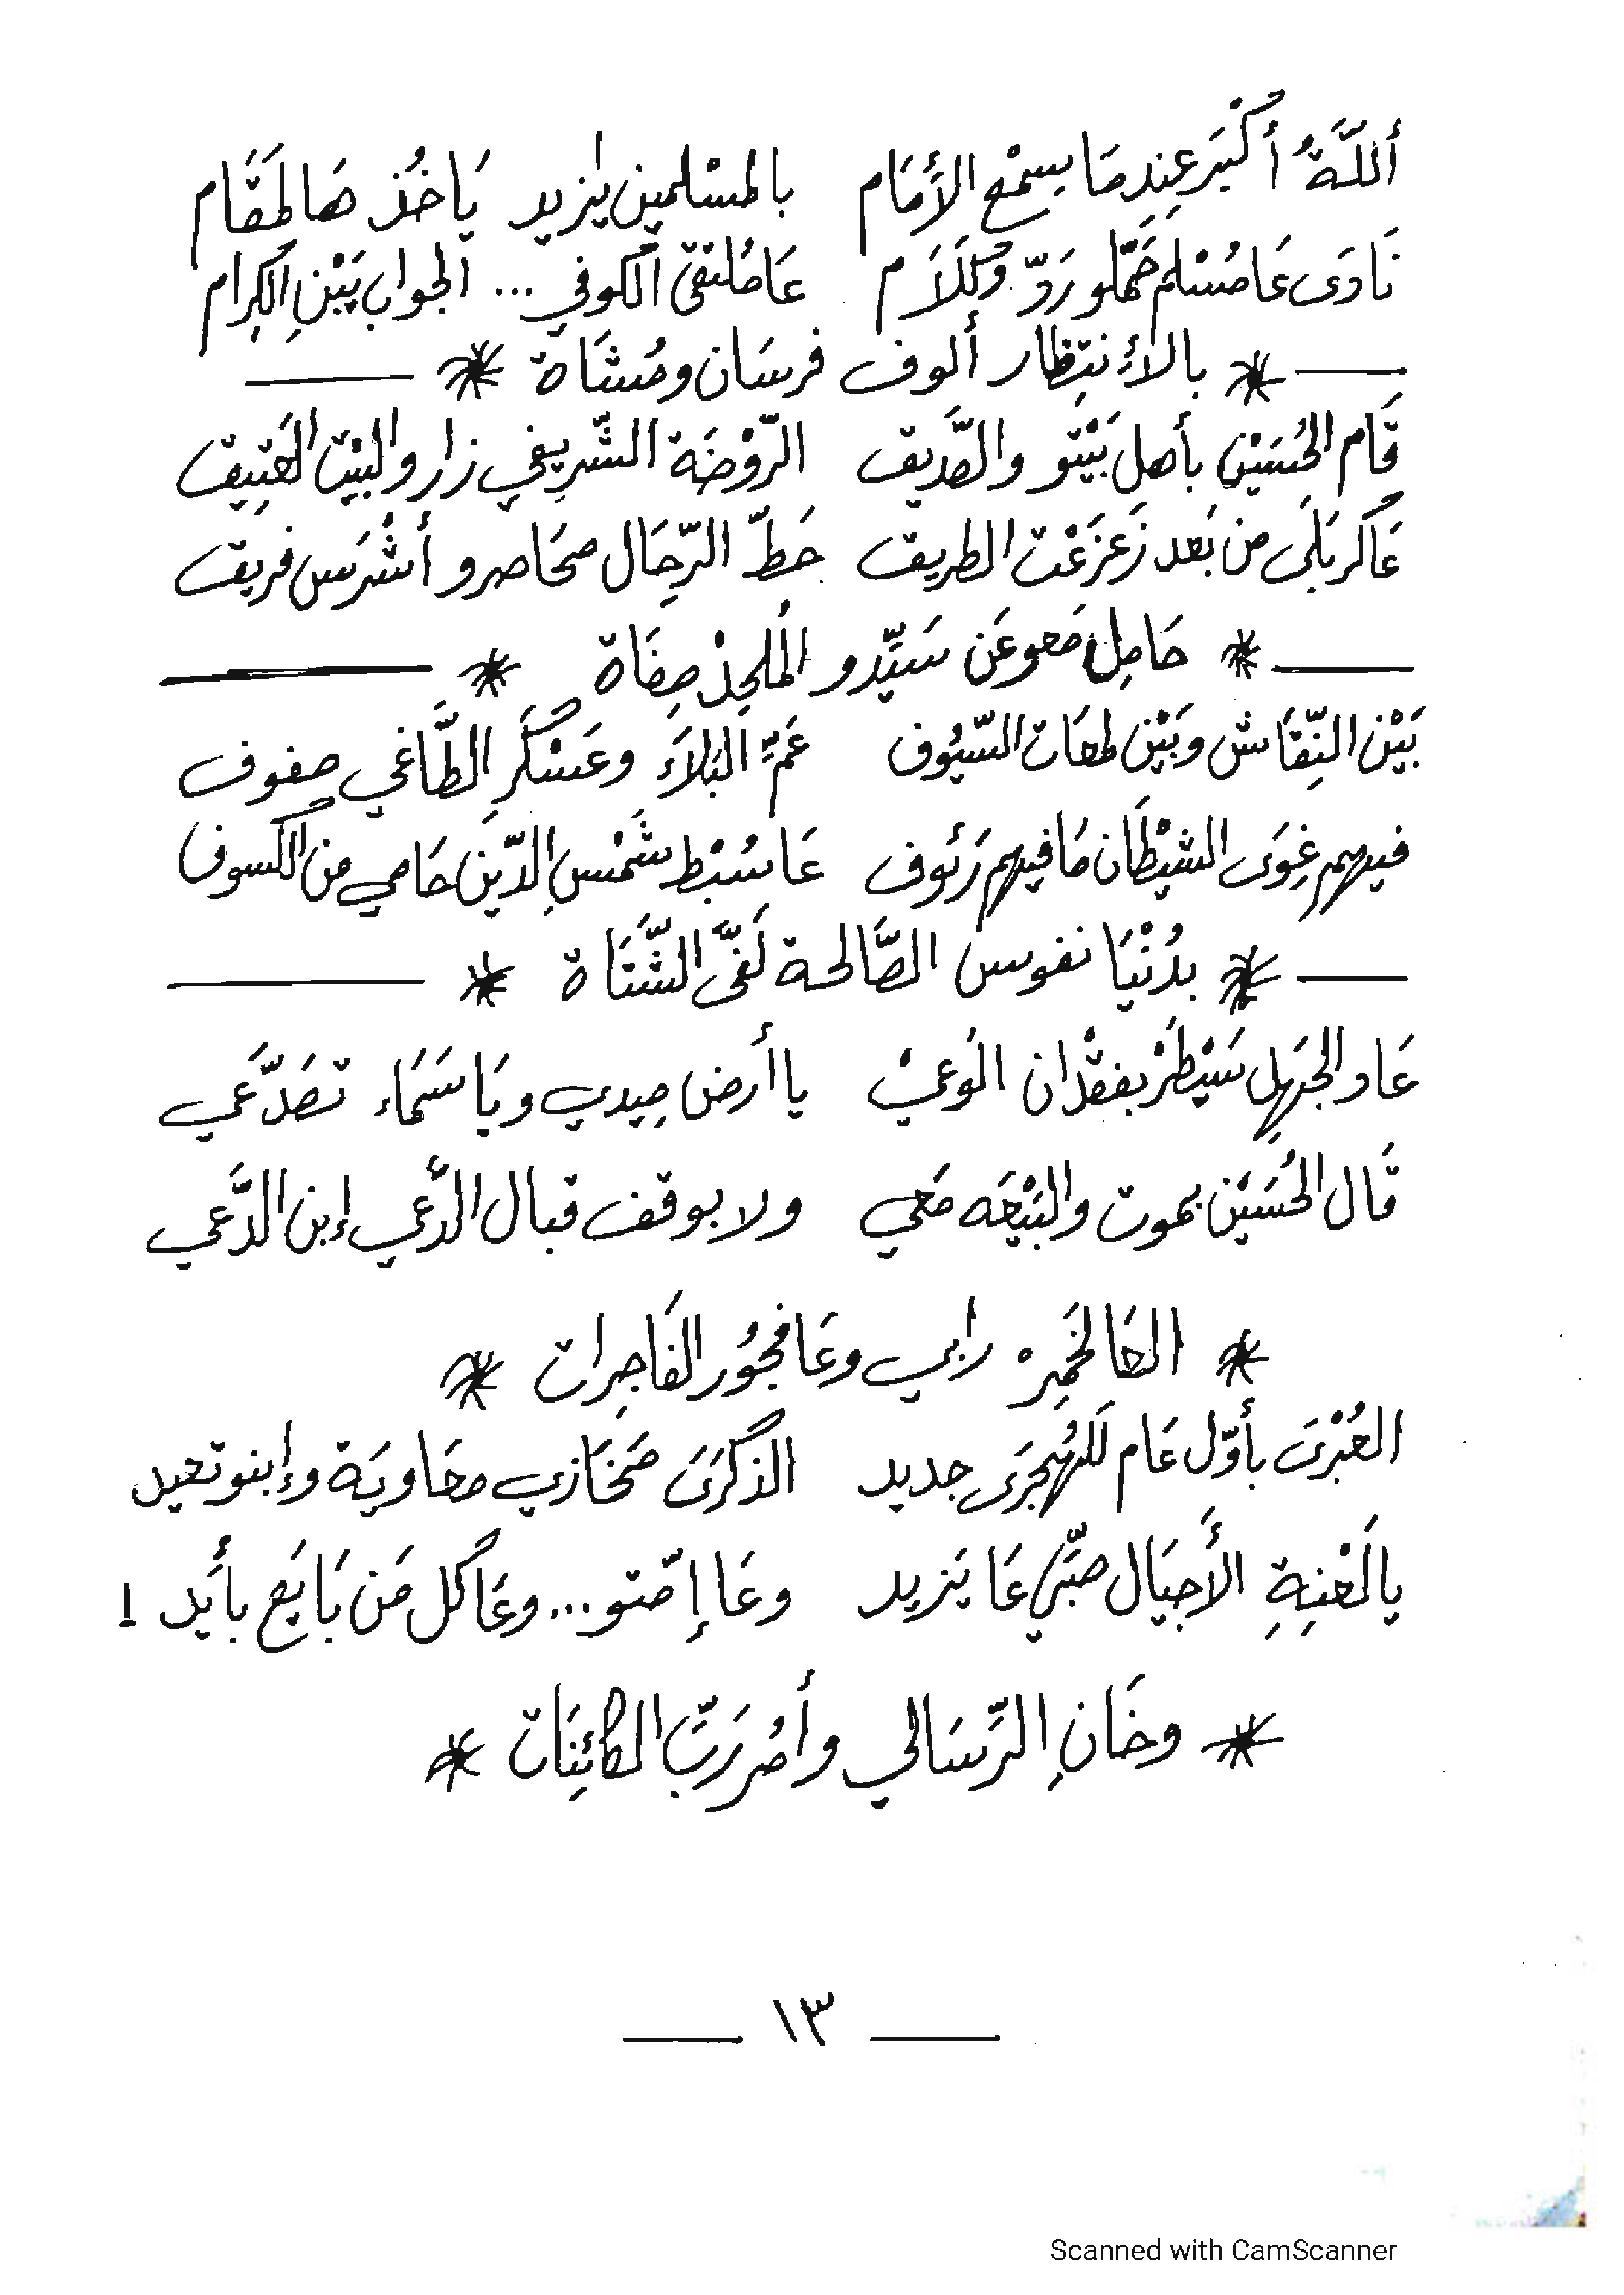 أللَّهُ أكْبَر عِندِ مَا سِمْع الأَمَام    بالمسْلمين يْزيد يَاخُذ هَالمَقَام
نَادَى عَا مُسْلم حَمَّلو رَدّ وْكَلَام    عَا مُلتقى الكوفي ... الجواب بَيْنِ الكِرام
بالأنتِظار ألوف فرسَان ومُشَاة
قَام الحُسَيْن بأهل بَيْتو والصَّديق    الرّوْضَة الشّرِيفي زار والبيْت العَتِيق
عَا كربَلَى من بَعد زَعزَعْت الطريق    حَطّ الرّحَال محَاصرو أشْرَس فريق
حَامِل مَعو عَن سَيِّدو المُلحِدْ صِفَاة
بَيْن النِّقَاش وبَيْن لمعَات السّيُوف    عَمِّ البَلاَء وعَسْكَرِ الطَّاغي صفوف
فيهم غِوَى الشيْطَان مَا فيهم رَئوف    عَا سُبْط شَمْسِ الدّين حَامي من الكسوف
بدُنْيَا نفوس الصَّالحة لَفَّى الشّتَاة
عَاد الجَهِل سَيْطَرْ بفقْدان الوَعيْ    يا أرض مِيدي ويَا سَمَاء تصَدَّعَي
قَال الحُسَيْن بموت والبَيْعَه مَعي    ولا بوقف قبال الدَّعي إبن الدَّعي
العَالخَمِرْه رابي وعَا فجُور الفَاجِرات
العُبْرَى بأوّل عَام للهُجرَى جديد    الذكْرَى مَخَازي معَاويَة وإبنو تعيد
يا لَعْنِةِ الأَجيَال صَبِّي عَا يَزيد    وعَا إمّتو... وعَا كل مَن بَايَع بأَيَد !
وخَانِ الرَّسَالي وأمُر رَبّ الكائِنَات
١٣
Scanned with CamScanner